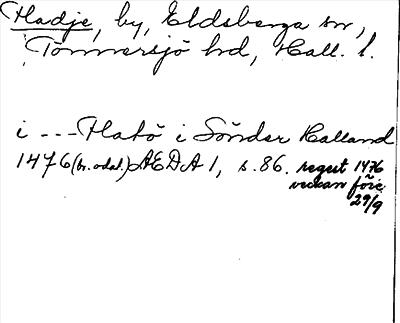 Hadje, by, Eldsberga sn,
Tönnersjö hd, Hall. l.
i --- Hatö i Sönder Halland
1476 (br. odat.) AEDA 1, s. 86. regest 1476
veckan före
29/9